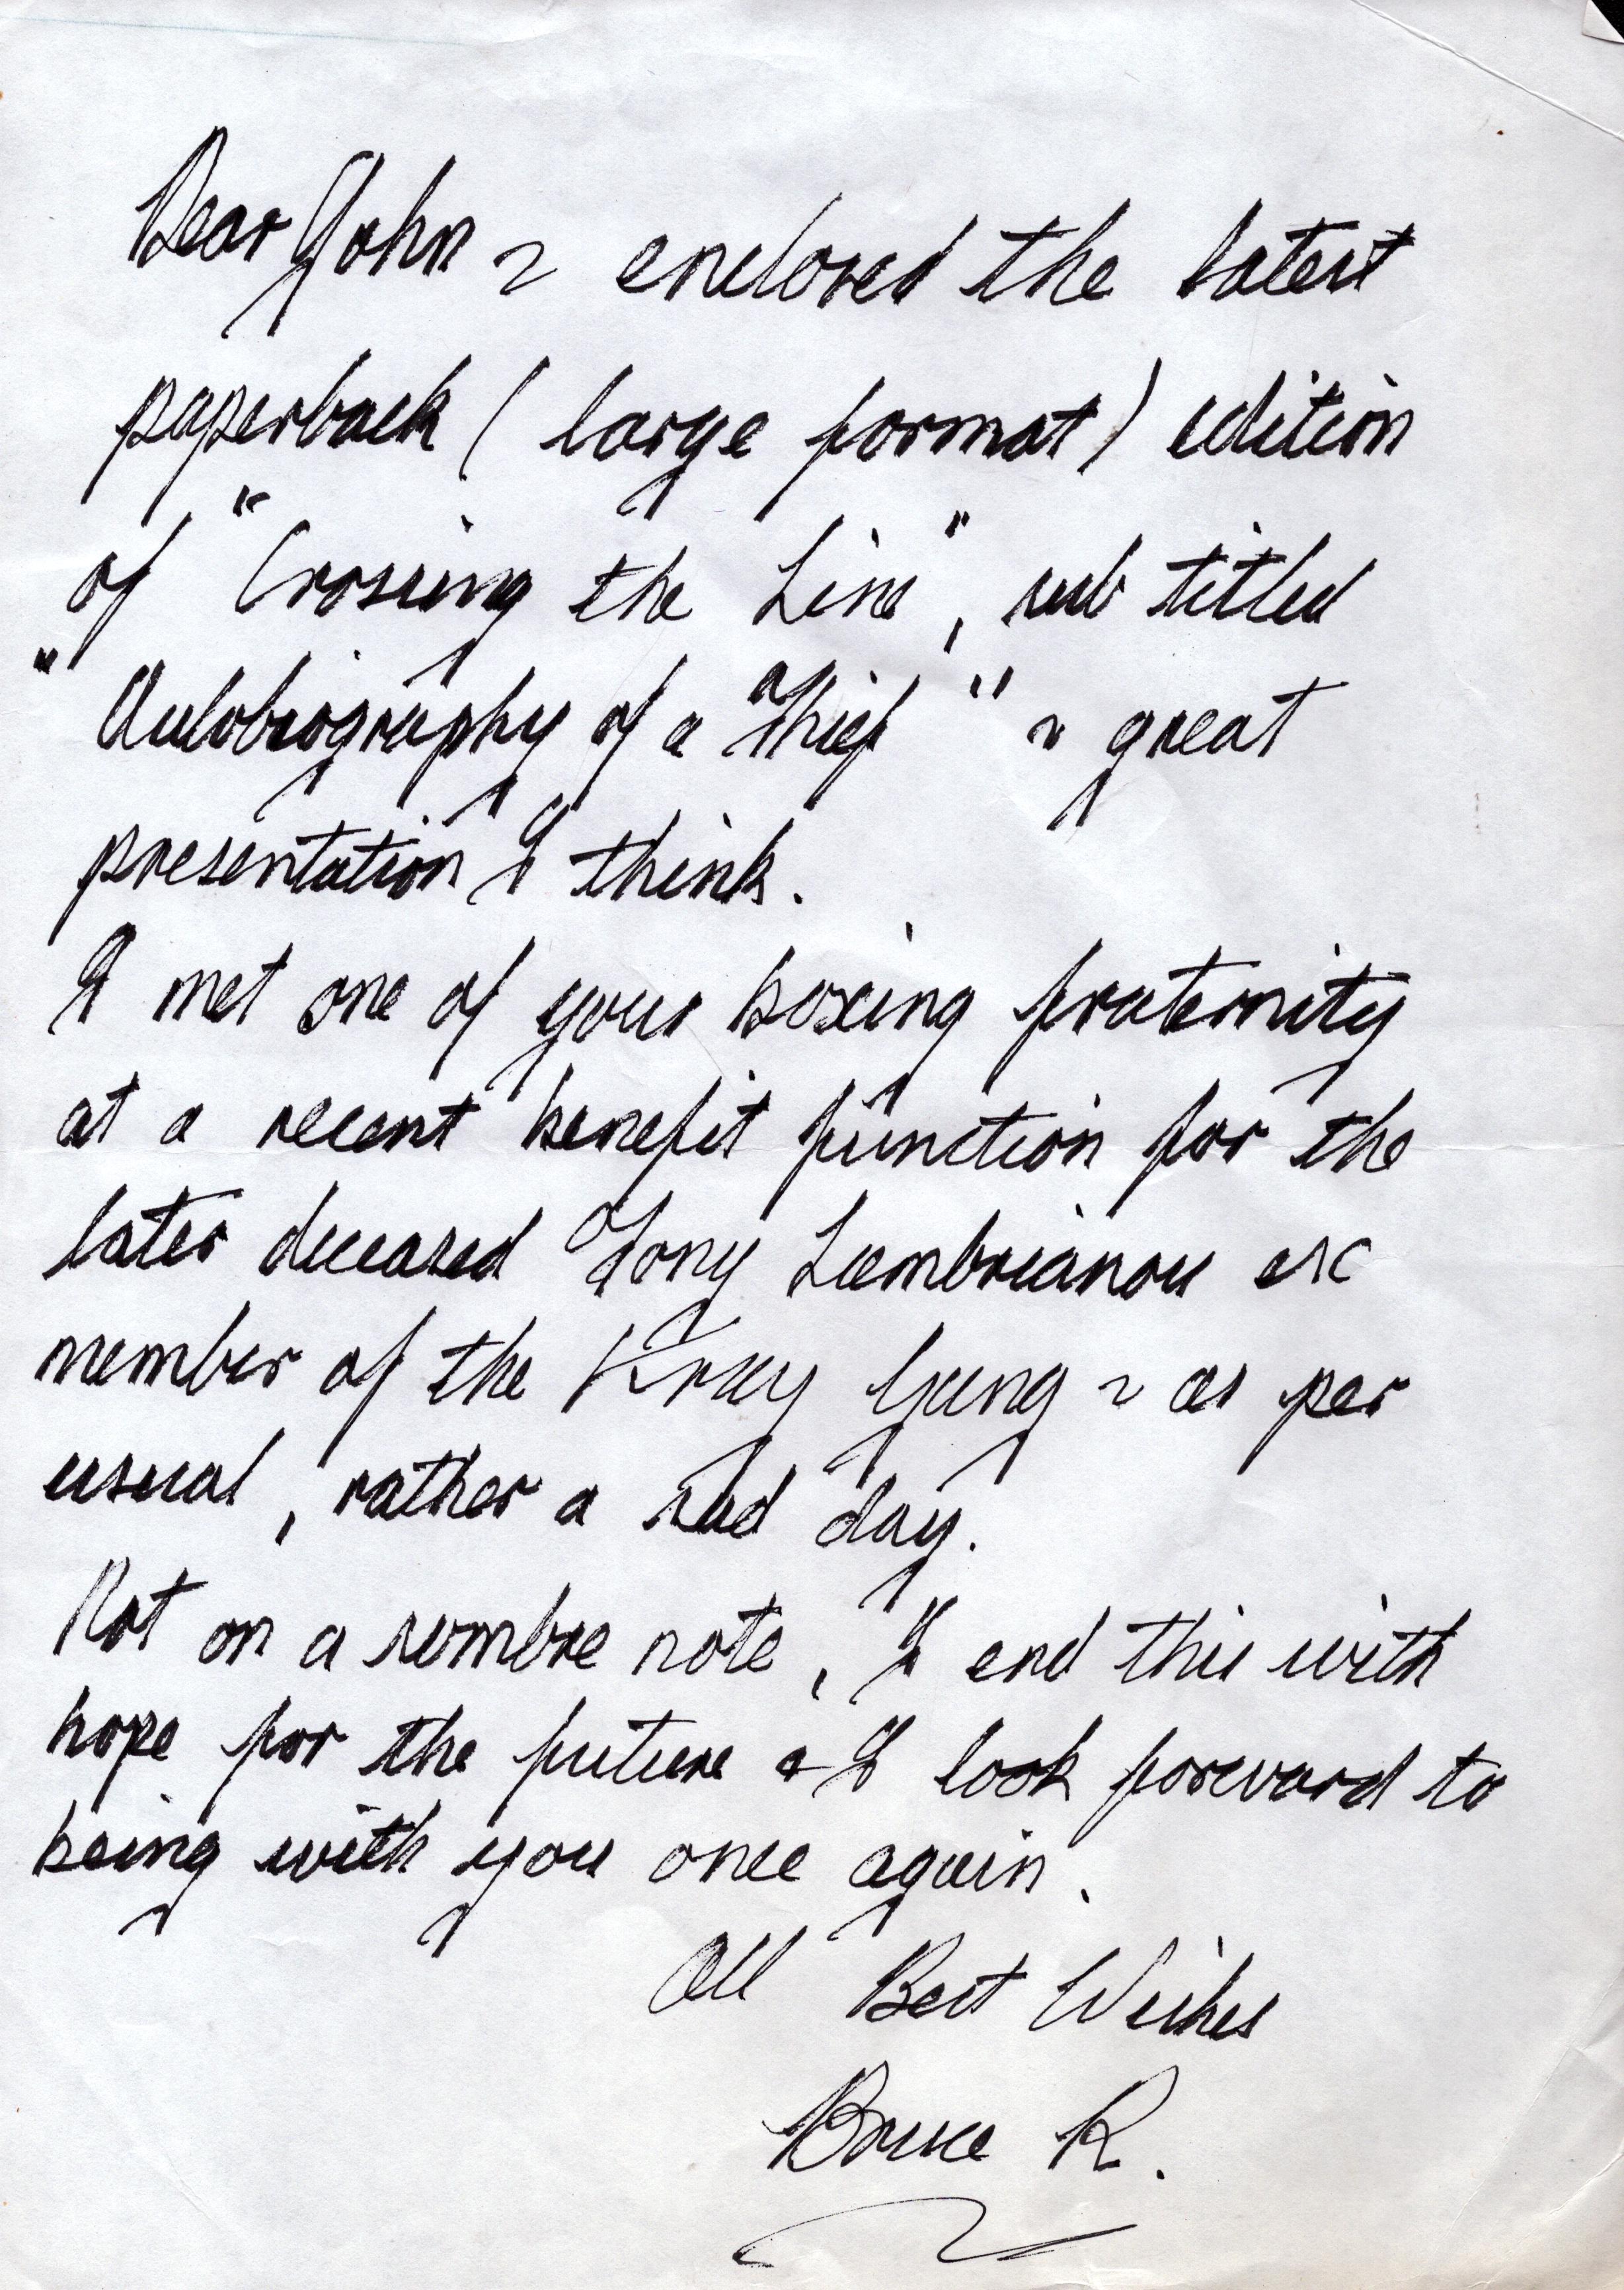 Dear John ~ enclosed the latest
paperback (large format) edition
of "Crossing the Line", sub titled
"Autobiography of a Thief" ~ great
presentation I think.
I met one of your boxing fraternity
at a recent benefit function for the
later deceased Tony Lambrianou ex
member of the Kray Gang ~ as per
usual, rather a sad day.
Not on a sombre note, I end this with
hope for the future & I look forward to
being with you once again.
All Best Wishes
Bruce R.